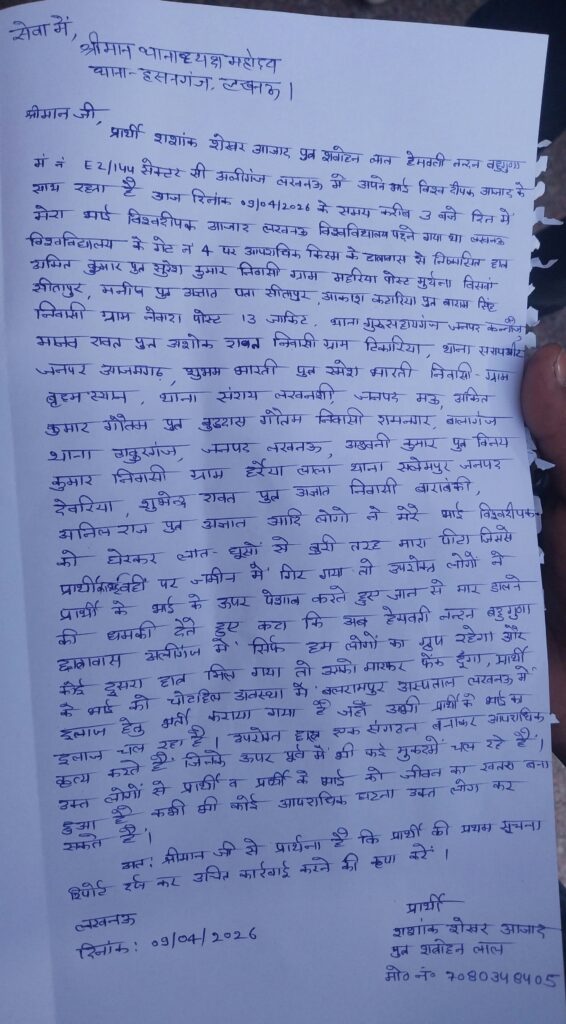 सेवा में,
श्रीमान थानाध्यक्ष महोदय
थाना- हसनगंज, लखनऊ।
श्रीमान जी,
प्रार्थी शशांक शेखर आजाद पुत्र शवोहन लाल हेमवती नन्दन बहुगुणा
मं नं E2/144 सेक्टर सी अलीगंज लखनऊ में अपने भाई विश्व दीपक आजाद के
साथ रहता है आज दिनांक 09/04/2026 के समय करीब 3 बजे दिन में
मेरा भाई विश्वदीपक आजाद लखनऊ विश्वविद्यालय पढ़ने गया था लखनऊ
विश्वविद्यालय के गेट नं 4 पर आपराधिक किस्म के छात्रावास से निष्कासित छात्र
अमित कुमार पुत्र सुरेश कुमार निवासी ग्राम महरिया पोस्ट बिसवां
सीतापुर, मनीष पुत्र अज्ञात पता सीतापुर, आकाश कठारिया पुत्र बाराम सिंह
निवासी ग्राम नेवारा पोस्ट 13 थाना गुरूसहायगंज जनपद कन्नौज,
मानव रावत पुत्र अशोक रावत निवासी ग्राम टिकरिया, थाना
जनपद आजमगढ़, शुभम भारती पुत्र रमेश भारती निवासी- ग्राम
बृहम स्थान, थाना सराय लखनसी, जनपद मऊ, अंकित
कुमार गौतम पुत्र बुद्धदास गौतम निवासी रामनगर, बालागंज
थाना ठाकुरगंज, जनपद लखनऊ, अश्वनी कुमार पुत्र विनय
कुमार निवासी ग्राम हरैया लाला थाना सलेमपुर जनपद
देवरिया, शुभेन्द्र रावत पुत्र अज्ञात निवासी बाराबंकी,
अनिल राज पुत्र अज्ञात आदि लोगो ने मेरे भाई विश्वदीपक
को घेरकर लात-घूसों से बुरी तरह मारा पीटा जिससे
प्रार्थी का भाई वहीं पर जमीन में गिर गया तो उपरोक्त लोगों ने
प्रार्थी के भाई के ऊपर पेशाब करते हुए जान से मार डालने
की धमकी देते हुए कहा कि अब हेमवती नन्दन बहुगुणा
छात्रावास अलीगंज में सिर्फ हम लोगों का ग्रुप रहेगा और
कोई दूसरा छात्र मिल गया तो उसको मारकर फेंक दूंगा, प्रार्थी
के भाई को चोटहिल अवस्था में बलरामपुर अस्पताल लखनऊ में
इलाज हेतु भर्ती कराया गया है जहाँ उसकी प्रार्थी के भाई का
इलाज चल रहा है। उपरोक्त छात्र एक संगठन बनाकर आपराधिक
कृत्य करते हैं जिनके ऊपर पूर्व में भी कई मुकदमें चल रहे हैं।
उक्त लोगों से प्रार्थी व प्रार्थी के भाई को जीवन का खतरा बना
हुआ है कभी भी कोई आपराधिक घटना उक्त लोग कर
सकते हैं।
अतः श्रीमान जी से प्रार्थना है कि प्रार्थी की प्रथम सूचना
रिपोर्ट दर्ज कर उचित कार्रवाई करने की कृपा करें।
लखनऊ
दिनांक: 09/04/2026
प्रार्थी
शशांक शेखर आजाद
पुत्र शवोहन लाल
मो० नं० 7080348405